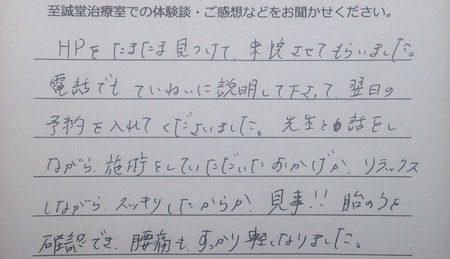 至誠堂治療室での体験談・ご感想などをお聞かせください。
HPをたまたま見つけて、来院させてもらいました。
電話でもていねいに説明して下さって、翌日の
予約を入れてくださいました。先生とも話をし
ながら、施術をしていただいたおかげか、リラックス
しながら、スッキリしたからか、見事!! 胎のうを
確認でき、腰痛も、すっかり軽くなりました。